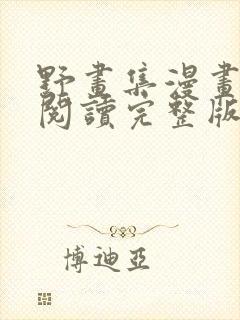 野畫集漫畫
閱讀完整版
博迪亞